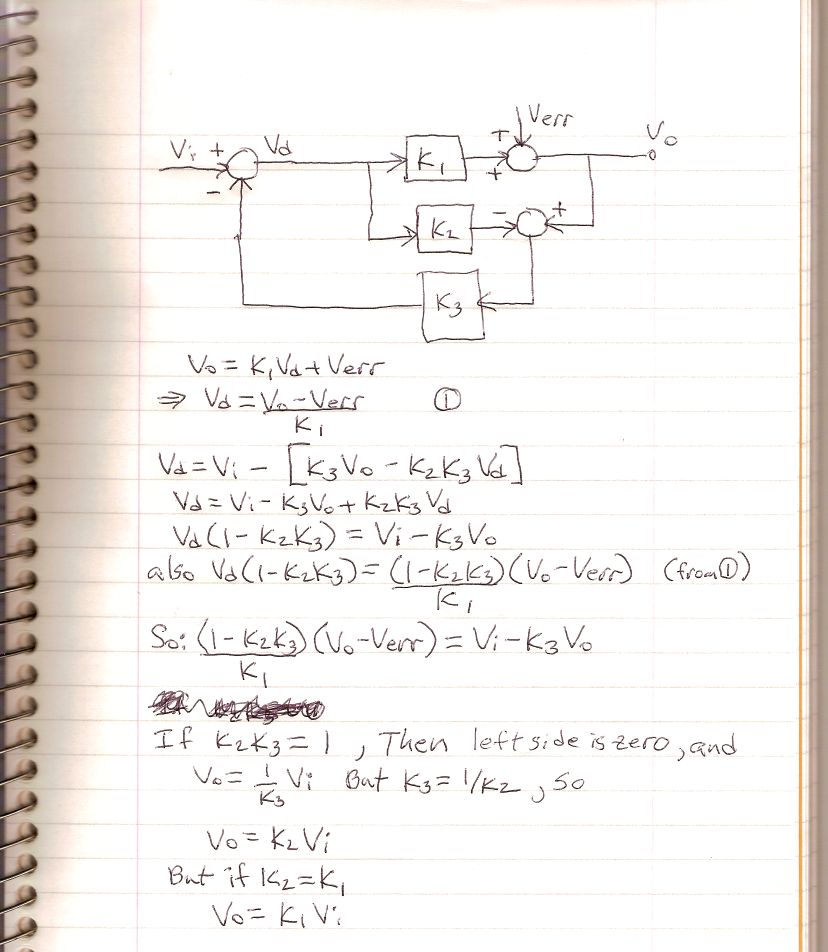 Verr
Vi + Vd K1 + + Vo
-
K2 - +
K3
Vo = K1Vd + Verr
⇒ Vd = (Vo - Verr)/K1 ①
Vd = Vi - [K3Vo - K2K3Vd]
Vd = Vi - K3Vo + K2K3Vd
Vd(1 - K2K3) = Vi - K3Vo
also Vd(1 - K2K3) = (1 - K2K3)(Vo - Verr)/K1 (from ①)
So: (1 - K2K3)/K1 (Vo - Verr) = Vi - K3Vo
If K2K3 = 1, Then left side is zero, and
Vo = 1/K3 Vi But K3 = 1/K2, so
Vo = K2Vi
But if K2 = K1
Vo = K1Vi